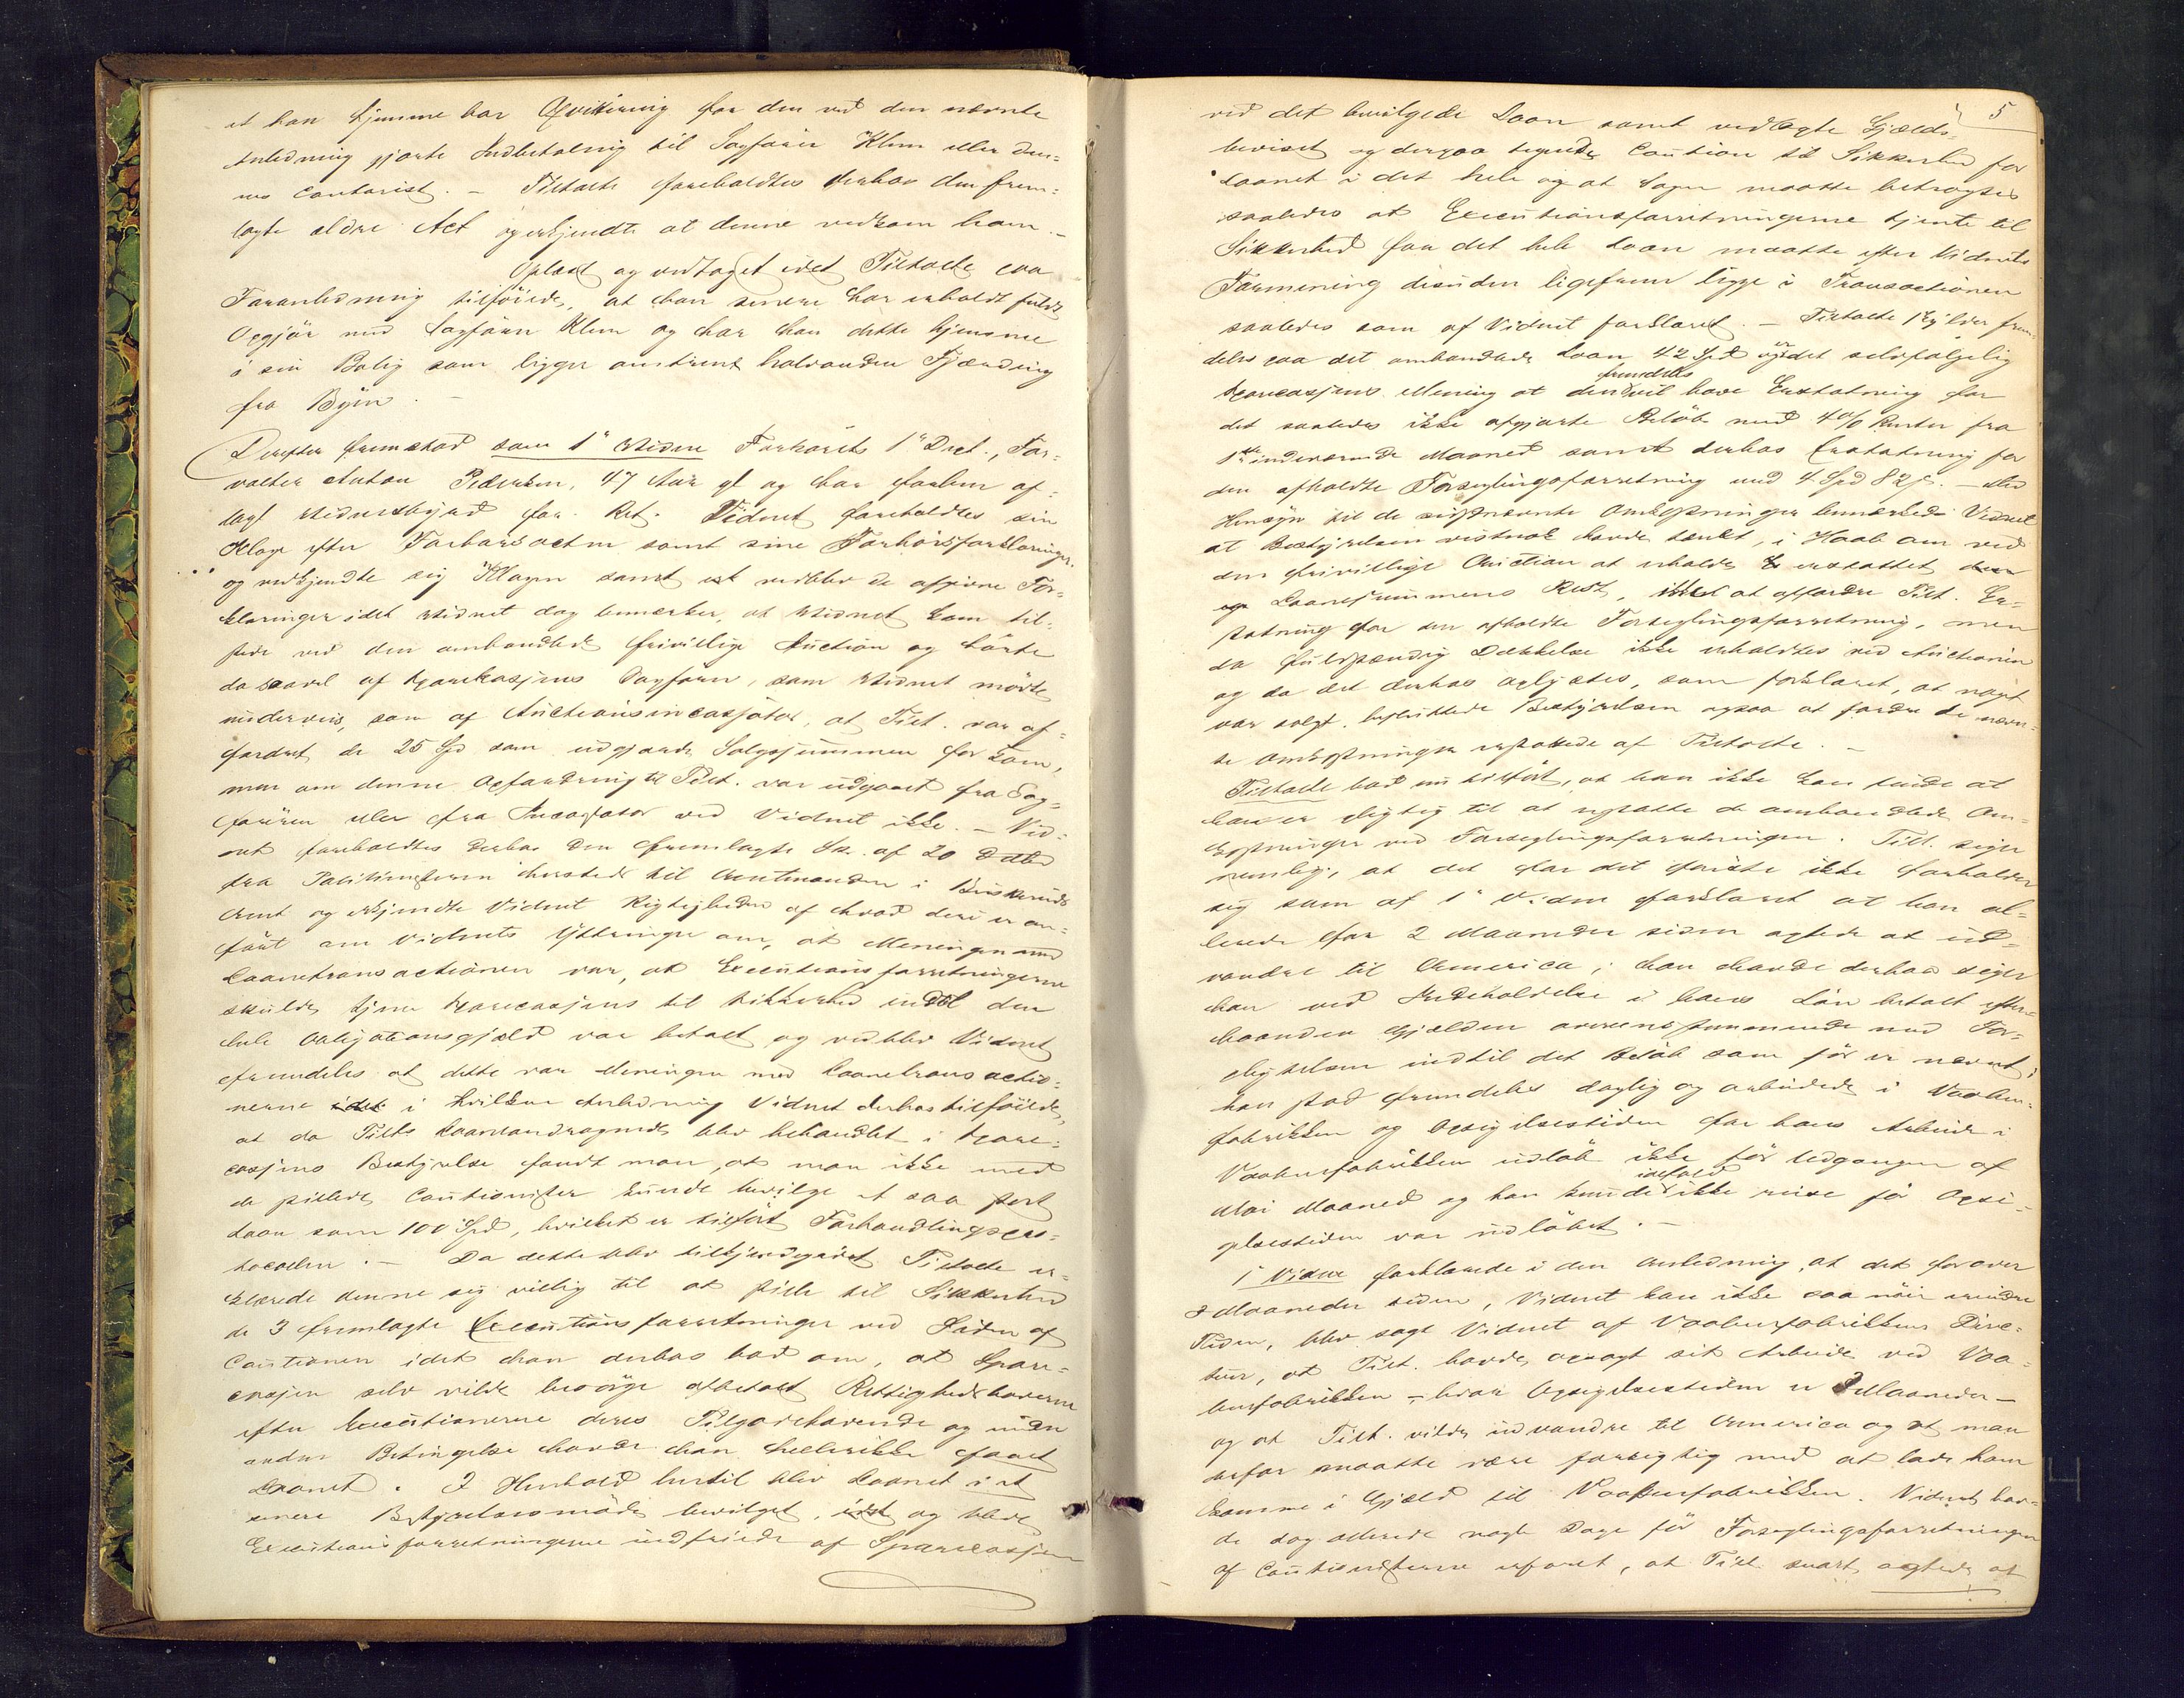 at han hjemme har Qvittering for den ved den nævnte
Anledning gjorte Indbetaling til Sagfører Klem eller den-
nes Contorist. – Tiltalte foreholdtes derhos den frem-
lagte ældre Act og erkjendte at denne vedkom ham. –
Oplæst og vedtaget idet Tiltalte paa
Foranledning tilføiede, at han senere har erholdt fuldt
Opgjør med Sagfører Klem og har han dette hjemme
i sin Bolig som ligger omtrent halvanden Fjærding
fra Byen. –
Derefter fremstod som 1ste Vidne Forhørets 1ste Dept., For-
valter Anton Pedersen, 47 Aar gl og har forhen af-
lagt Vidnesbyrd for Ret. Vidnet foreholdtes sin
Klage efter Forhørsacten samt sine Forhørsforklaringer
og vedkjendte sig Klagen samt vedblev de afgivne For-
klaringer idet Vidnet dog bemærker, at Vidnet kom til-
stede ved den omhandlede frivillige Auction og hørte
da saavel af Sparekassens Sagfører, som Vidnet mødte
underveis, som af Auctionsincassator, at Tilt. var af-
fordret de 25 Spd som udgjorde Salgssummen for Koen,
men om denne Opfordring til Tilt. var udgaaet fra Sag-
føreren eller fra Incassator ved Vidnet ikke. – Vid-
net foreholdtes derhos den fremlagte Sk. af 20 d. M.
fra Politimesteren hersteds til Amtmanden i Buskeruds
Amt og erkjendte Vidnet Rigtigheden af hvad deri er an-
ført om Vidnets Yttringer om, at Meningen med
Laanetransactionen var, at Executionsforretningerne
skulde tjene Sparecassens til Sikkerhed indtil den
hele Obligationsgjæld var betalt og vedblev Vidnet
fremdeles at dette var Meningen med Laanetransactio-
nerne idet i hvilken Anledning Vidnet derhos tilføiede,
at da Tilts Laaneandragende blev behandlet i Spare-
cassens Bestyrelse fandt man, at man ikke med
de stillede Cautionister kunde bevilge et saa stort
Laan som 100 Spd, hvilket er tilført Forhandlingspro-
tocollen. – Da dette blev tilkjendegivet Tiltalte er-
klærede denne sig villig til at stille til Sikkerhed
de 3 fremlagte Executionsforretninger ved Siden af
Cautionen idet han derhos bad om, at Spare-
cassen selv vilde besørge afbetalt Rettighedshaverne
efter Executionerne deres Tilgodehavende og uden
anden Betingelse havde han hellerikke faaet
Laanet. I Henhold hertil blev Laanet i et
senere Bestyrelsesmøde bevilget, idet og blev
Executionsforretningerne indfriede af Sparecassen
5
ved det bevilgede Laan samt vedlagte Gjælds-
beviset og derpaa tegnede Caution til Sikkerhed for
Laanet i det hele og at Sagen maatte betragtes
saaledes at Executionsforretningerne tjente til
Sikkerhed for det hele Laan maatte efter Vidnets
Formening desuden ligefrem ligge i Transactionen
saaledes som af Vidnet forklaret. – Tiltalte skylder frem-
deles paa det omhandlede Laan 42 Spd og er det selvfølgelig
Sparecassens Mening at den fremdeles vil have Erstatning for
det saaledes ikke afgjorte Beløb med 4% Renter fra
1ste indeværende Maaned samt derhos Erstatning for
den afholdte Forseglingsforretning med 4 Spd 82 s. – Med
Hensyn til de sidstnævnte Omkostninger bemærkede Vidnet
at Bestyrelsen vistnok havde tænkt, i Haab om ved
den frivillige Auction at erholde erstattet den
Laanesummens Rest, ikke at affordre Tilt. Er-
statning for den afholdte Forseglingsforretning, men
da fuldstændig Dækkelse ikke erholdtes ved Auctionen
og da det derhos oplystes, som forklaret, at noget
var solgt, besluttede Bestyrelsen ogsaa at fordre de nævn-
te Omkostninger erstattede af Tiltalte. –
Tiltalte bad nu tilført, at han ikke kan finde at
han er pligtig til at erstatte de omhandlede Om-
kostninger ved Forseglingsforretningen. Tilt. siger
nemlig, at det for det første ikke forholder
sig som af 1ste Vidne forklaret at han al-
lerede for 2 Maaneder siden agtede at ud-
vandre til America; han havde derhos siger
han ved Indeholdelse i hans Løn betalt efter-
haanden Gjælden overensstemmende med For-
pligtelsen indtil det Beløb som før er nævnt,
han stod fremdeles daglig og arbeidede i Vaaben-
fabrikken og Opsigelsestiden for hans Arbeide i
Vaabenfabrikken udløb ikke før Udgangen af
Mai Maaned og han kunde ialfald ikke reise før Opsi-
gelsestiden var udløbet. –
1ste Vidne forklarede i den Anledning, at det for over
2 Maaneder siden, Vidnet kan ikke saa nøie erindre
Tiden, blev sagt Vidnet af Vaabenfabrikkens Direc-
teur, at Tilt. havde opsagt sit Arbeide ved Vaa-
benfabrikken – hvor Opsigelsestiden er 3 Maaneder –
og at Tilt. vilde udvandre til America og at man
derfor maatte være forsigtig med at lade ham
komme i Gjæld til Vaabenfabrikken. Vidnet hav-
de dog allerede nogle Dage før Forseglingsforretningen
af Cautionisterne erfaret, at Tilt. snart agtede at